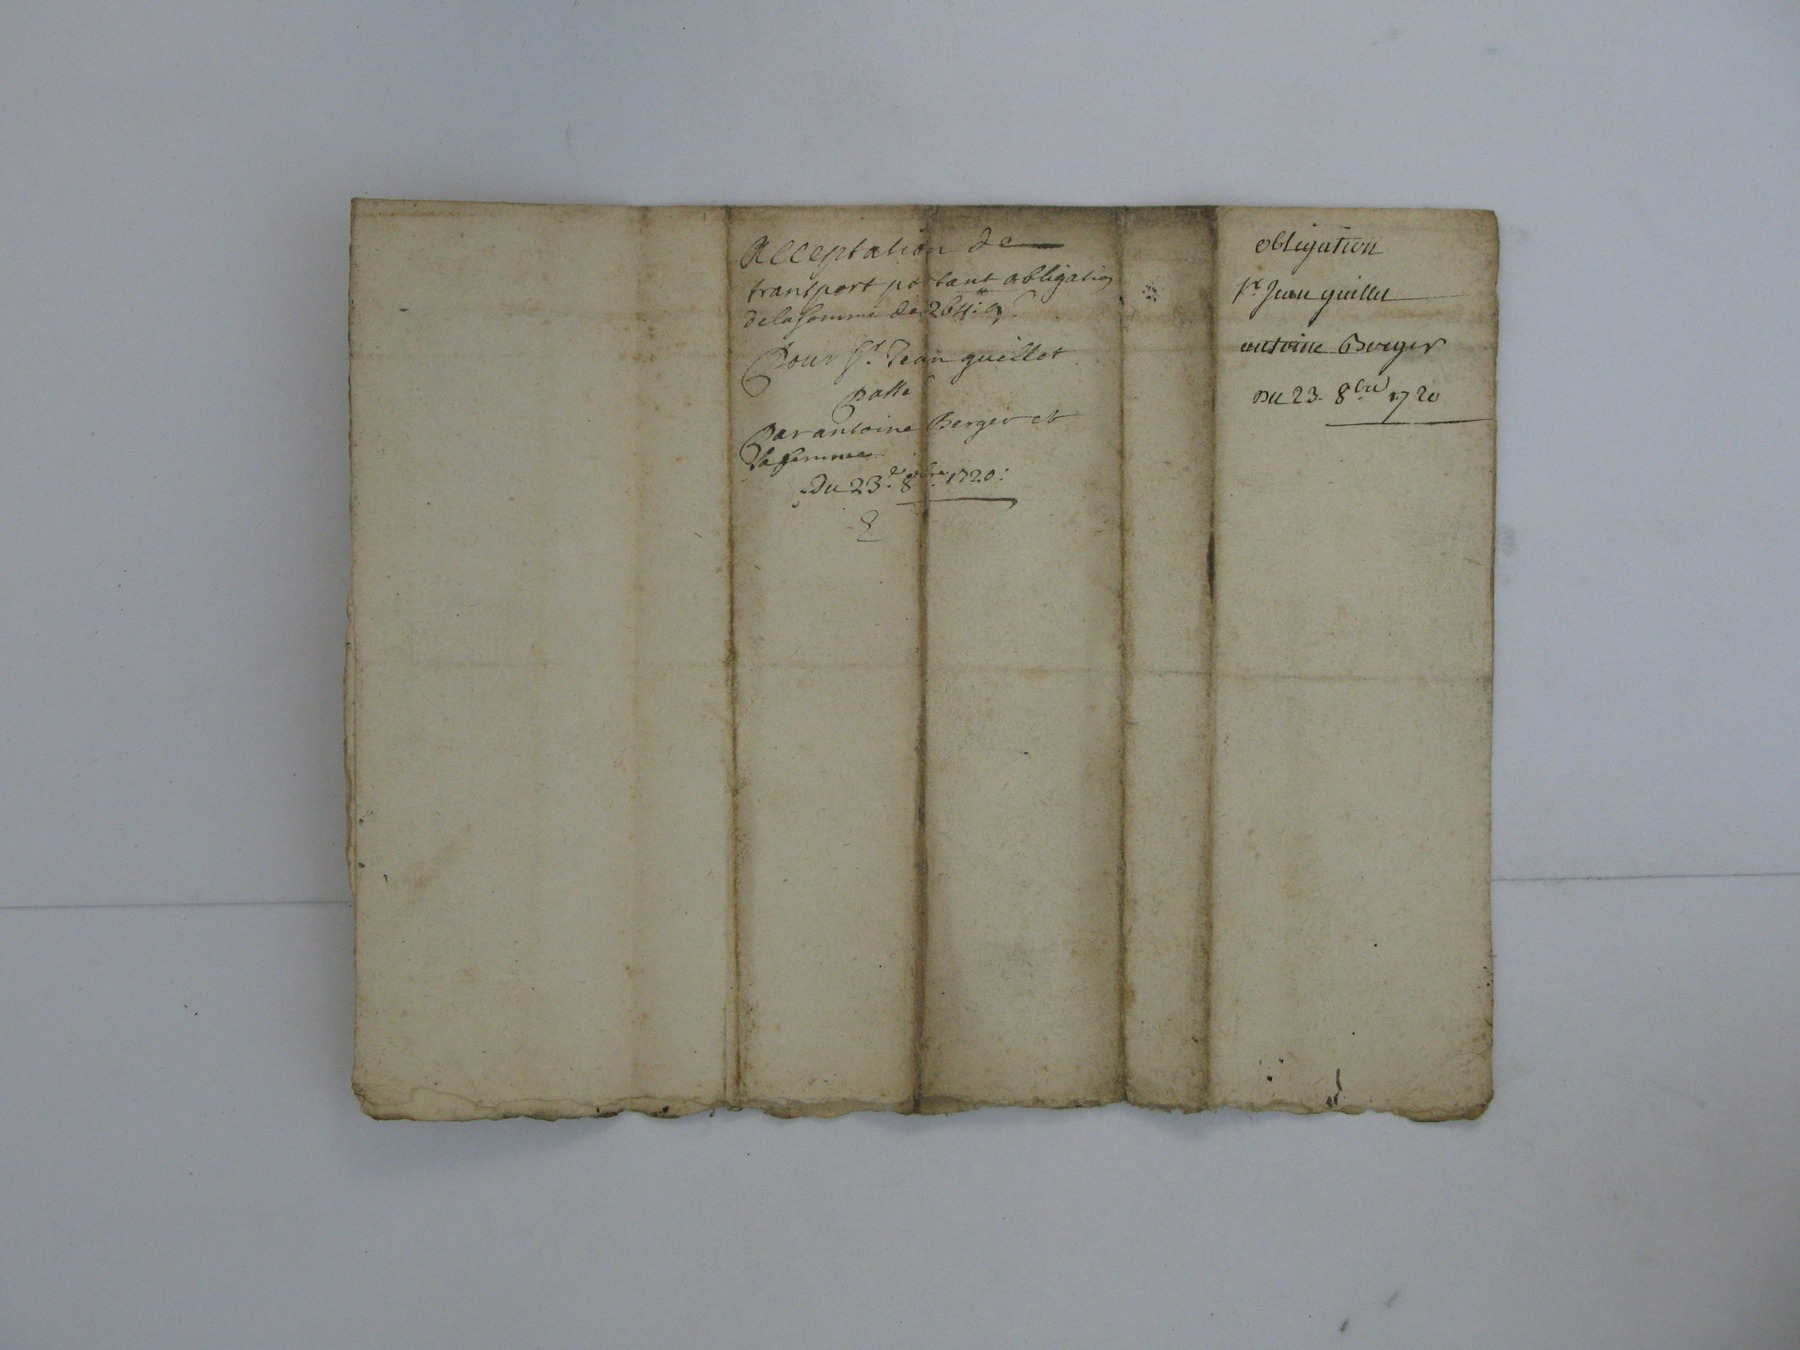 Acceptation de
transport portant obligation
de la somme de 264.# 9.s
Pour Sr. Jean guillet
passé
Par antoine Berger et
sa femme
Du 23e. 8bre. 1720.
obligation
sr Jean guillet
antoine Berger
Du 23. 8bre 1720